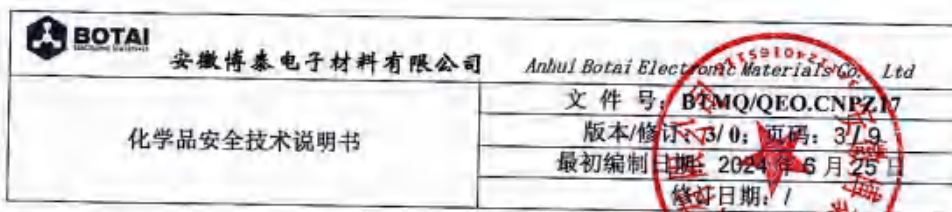 BOTAI
安徽博泰电子材料有限公司
Anhui Botai Electronic Materials Co. Ltd
化学品安全技术说明书
文 件 号: BTMQ/QEO.CNPZ17
版本/修订: 3/ 0; 页码: 3 / 9
最初编制日期: 2024 年 6 月 25 日
修订日期: /